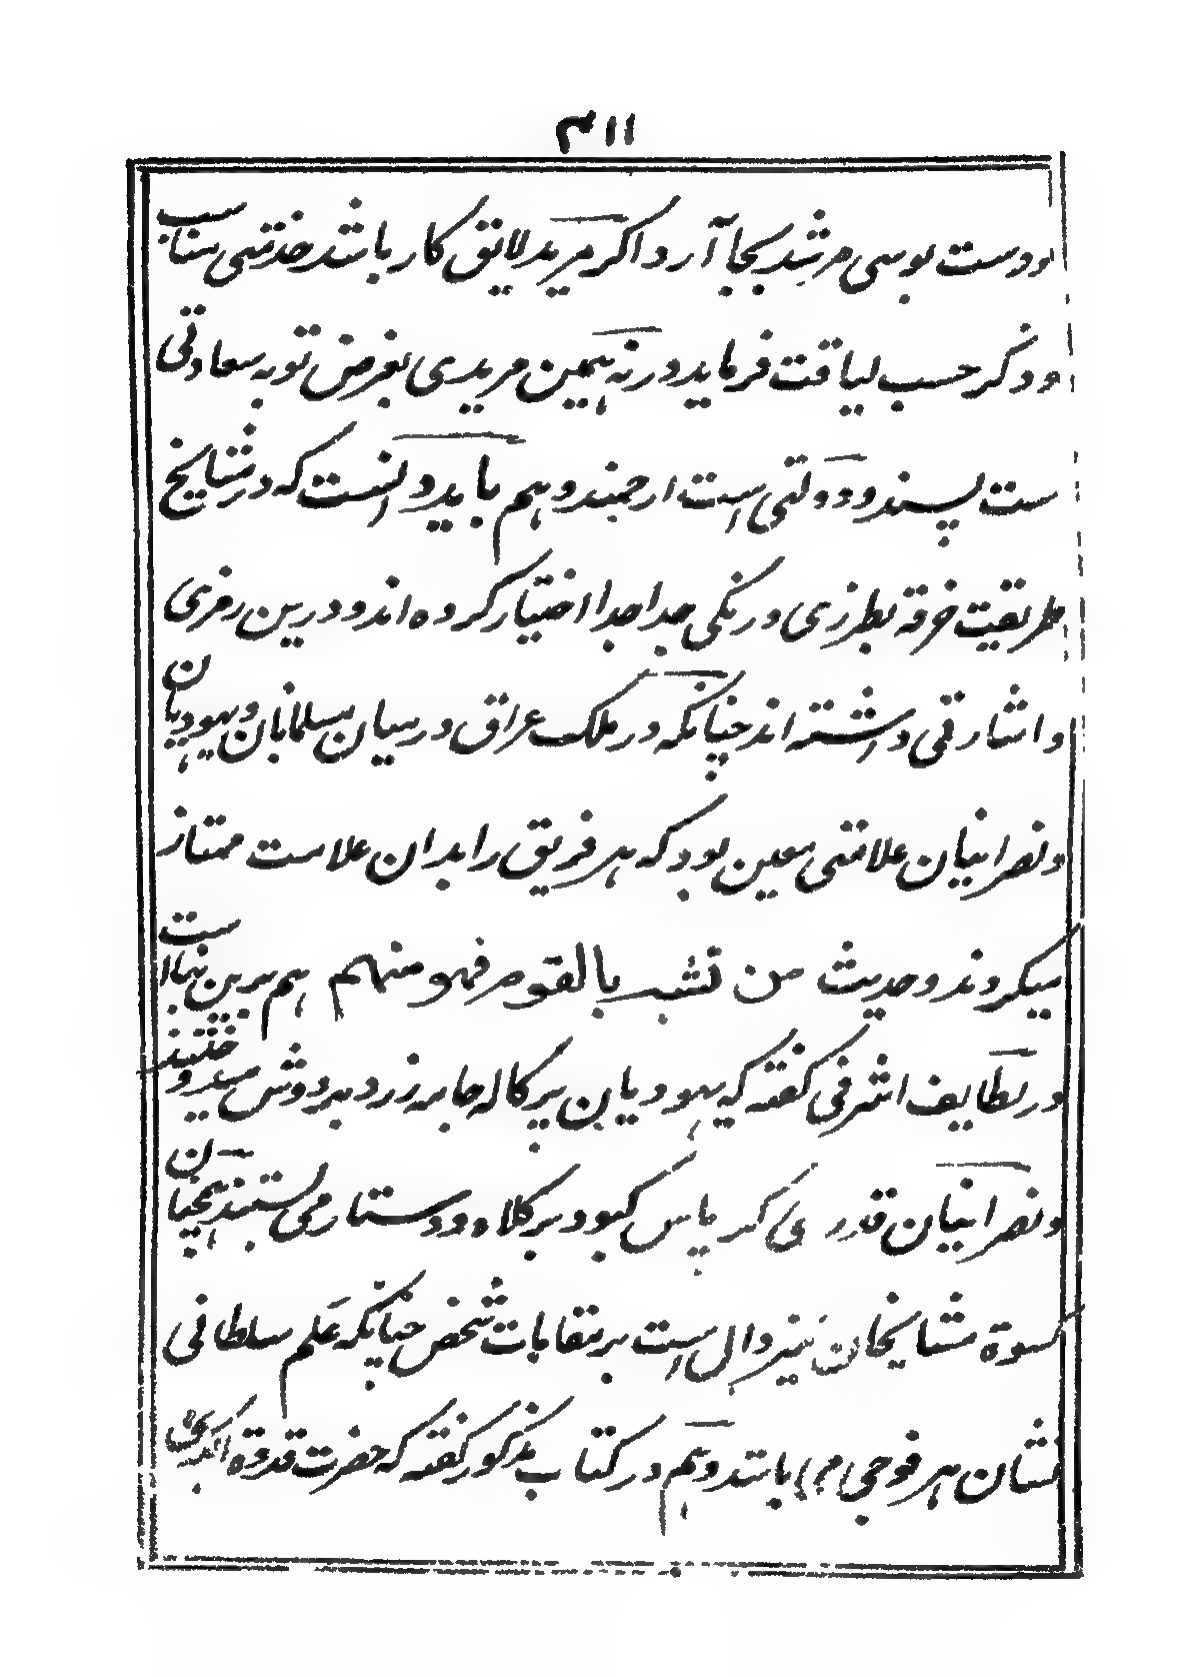 ۳۱۱
ودست بوسی مرشد بجا آرد اگر مرید لایق کار باشد خدمتی مناسب
وذکر حسب لیاقت فرماید ورنه همین مریدی بغرض توبه سعادتی
ست پسند و دولتی است ارجمند و هم باید دانست که در مشایخ
طریقت خرقه بطرزی و رنگی جدا جدا اختیار کرده اند و درین رمزی
و اشارتی داشته اند چنانکه در ملک عراق درمیان مسلمانان و یهودیان
و نصرانیان علامتی معین بود که هر فریق را بدان علامت ممتاز
میکردند و حدیث من تشبه بالقوم فهو منهم هم برین بنا است
و در لطایف اشرفی گفته که یهودیان پرکاله جامه زرد بر دوش میدوختند
و نصرانیان قدری کرپاس کبود بر کلاه و دستار می بستند همچنان
کسوة مشایخان نیز دال است بر مقامات شخص چنانکه علم سلطانی
نشان هر فوجی باشد و هم در کتاب مذکور گفته که حضرت قدوة